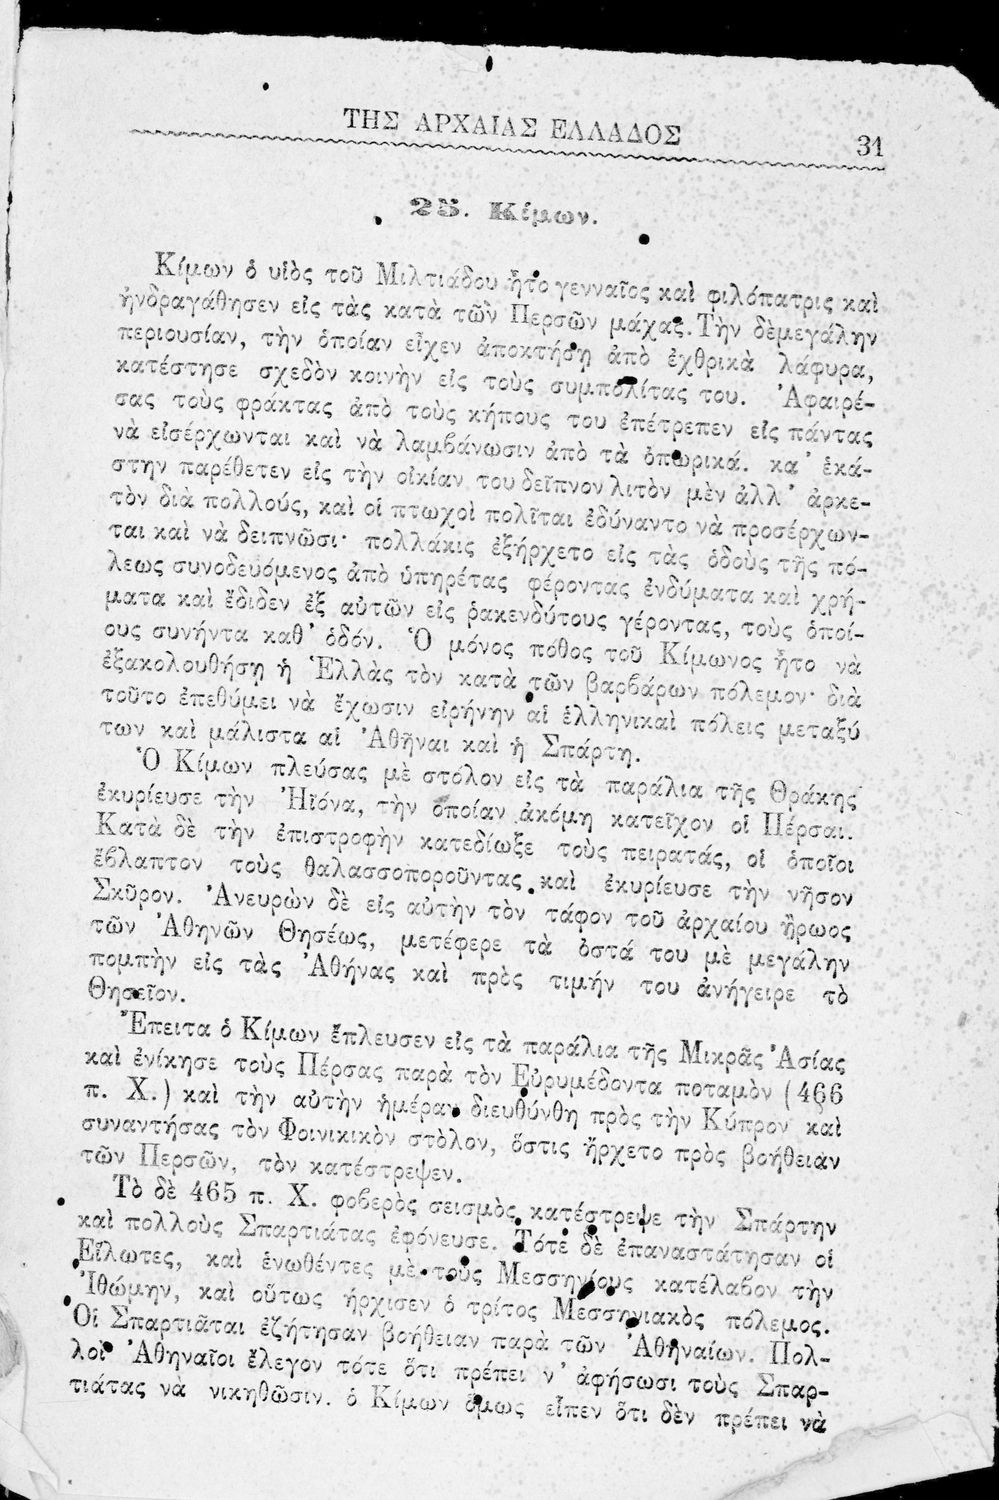 ΤΗΣ ΑΡΧΑΙΑΣ ΕΛΛΑΔΟΣ 31
25. Κίμων.
Κίμων ὁ υἱὸς τοῦ Μιλτιάδου ἦτο γενναῖος καὶ φιλόπατρις καὶ
ἠνδραγάθησεν εἰς τὰς κατὰ τῶν Περσῶν μάχας. Τὴν δὲ μεγάλην
περιουσίαν, τὴν ὁποίαν εἶχεν ἀποκτήσῃ ἀπὸ ἐχθρικὰ λάφυρα,
κατέστησε σχεδὸν κοινὴν εἰς τοὺς συμπολίτας του. Ἀφαιρέ-
σας τοὺς φράκτας ἀπὸ τοὺς κήπους του ἐπέτρεπεν εἰς πάντας
νὰ εἰσέρχωνται καὶ νὰ λαμβάνωσιν ἀπὸ τὰ ὀπωρικά. κα' ἑκά-
στην παρέθετεν εἰς τὴν οἰκίαν του δεῖπνον λιτὸν μὲν ἀλλ' ἀρκε-
τὸν διὰ πολλούς, καὶ οἱ πτωχοὶ πολῖται ἐδύναντο νὰ προσέρχων-
ται καὶ νὰ δειπνῶσι· πολλάκις ἐξήρχετο εἰς τὰς ὁδοὺς τῆς πό-
λεως συνοδευόμενος ἀπὸ ὑπηρέτας φέροντας ἐνδύματα καὶ χρή-
ματα καὶ ἔδιδεν ἐξ αὐτῶν εἰς ῥακενδύτους γέροντας, τοὺς ὁποί-
ους συνήντα καθ' ὁδόν. Ὁ μόνος πόθος τοῦ Κίμωνος ἦτο νὰ
ἐξακολουθήσῃ ἡ Ἑλλὰς τὸν κατὰ τῶν βαρβάρων πόλεμον· διὰ
τοῦτο ἐπεθύμει νὰ ἔχωσιν εἰρήνην αἱ ἑλληνικαὶ πόλεις μεταξύ
των καὶ μάλιστα αἱ Ἀθῆναι καὶ ἡ Σπάρτη.
Ὁ Κίμων πλεύσας μὲ στόλον εἰς τὰ παράλια τῆς Θράκης
ἐκυρίευσε τὴν Ἠϊόνα, τὴν ὁποίαν ἀκόμη κατεῖχον οἱ Πέρσαι.
Κατὰ δὲ τὴν ἐπιστροφὴν κατεδίωξε τοὺς πειρατάς, οἱ ὁποῖοι
ἔβλαπτον τοὺς θαλασσοποροῦντας καὶ ἐκυρίευσε τὴν νῆσον
Σκῦρον. Ἀνευρὼν δὲ εἰς αὐτὴν τὸν τάφον τοῦ ἀρχαίου ἥρωος
τῶν Ἀθηνῶν Θησέως, μετέφερε τὰ ὀστά του μὲ μεγάλην
πομπὴν εἰς τὰς Ἀθήνας καὶ πρὸς τιμήν του ἀνήγειρε τὸ
Θησεῖον.
Ἔπειτα ὁ Κίμων ἔπλευσεν εἰς τὰ παράλια τῆς Μικρᾶς Ἀσίας
καὶ ἐνίκησε τοὺς Πέρσας παρὰ τὸν Εὐρυμέδοντα ποταμὸν (466
π. Χ.) καὶ τὴν αὐτὴν ἡμέραν διευθύνθη πρὸς τὴν Κύπρον καὶ
συναντήσας τὸν Φοινικικὸν στόλον, ὅστις ἤρχετο πρὸς βοήθειαν
τῶν Περσῶν, τὸν κατέστρεψεν.
Τὸ δὲ 465 π. Χ. φοβερὸς σεισμὸς κατέστρεψε τὴν Σπάρτην
καὶ πολλοὺς Σπαρτιάτας ἐφόνευσε. Τότε δὲ ἐπαναστάτησαν οἱ
Εἵλωτες, καὶ ἑνωθέντες μὲ τοὺς Μεσσηνίους κατέλαβον τὴν
Ἰθώμην, καὶ οὕτως ἤρχισεν ὁ τρίτος Μεσσηνιακὸς πόλεμος.
Οἱ Σπαρτιᾶται ἐζήτησαν βοήθειαν παρὰ τῶν Ἀθηναίων. Πολ-
λοὶ Ἀθηναῖοι ἔλεγον τότε ὅτι πρέπει ν' ἀφήσωσι τοὺς Σπαρ-
τιάτας νὰ νικηθῶσιν. ὁ Κίμων ὅμως εἶπεν ὅτι δὲν πρέπει νὰ